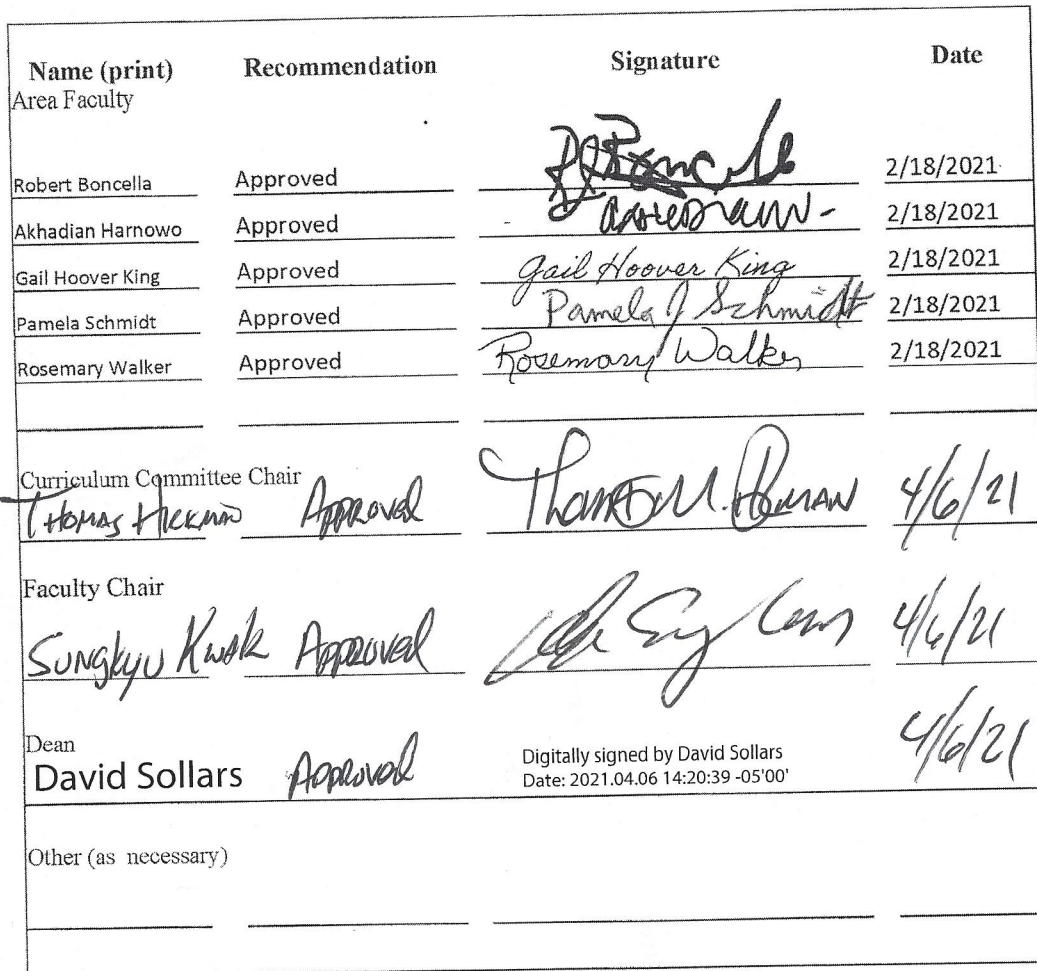 Name (print) Recommendation Signature Date
Area Faculty
Robert Boncella Approved 2/18/2021
Akhadian Harnowo Approved 2/18/2021
Gail Hoover King Approved Gail Hoover King 2/18/2021
Pamela Schmidt Approved Pamela J Schmidt 2/18/2021
Rosemary Walker Approved Rosemary Walker 2/18/2021
Curriculum Committee Chair
THOMAS HICKMAN Approved 4/6/21
Faculty Chair
Sungkyu Kwak Approved 4/6/21
Dean
David Sollars Approved Digitally signed by David Sollars 4/6/21
Date: 2021.04.06 14:20:39 -05'00'
Other (as necessary)